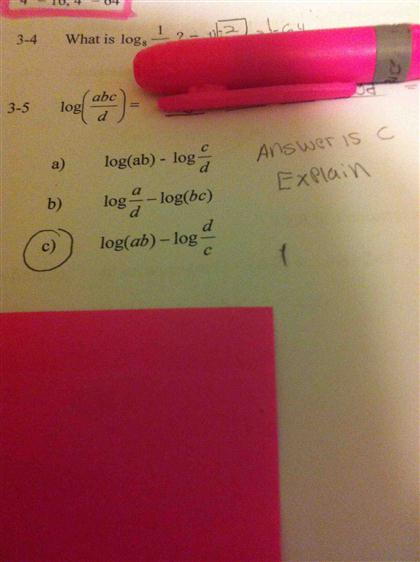 3-4 What is log₈ 1
3-5 log(abc/d) =
a) log(ab) - log c/d
b) log a/d – log(bc)
c) log(ab) – log d/c
Answer is C
Explain